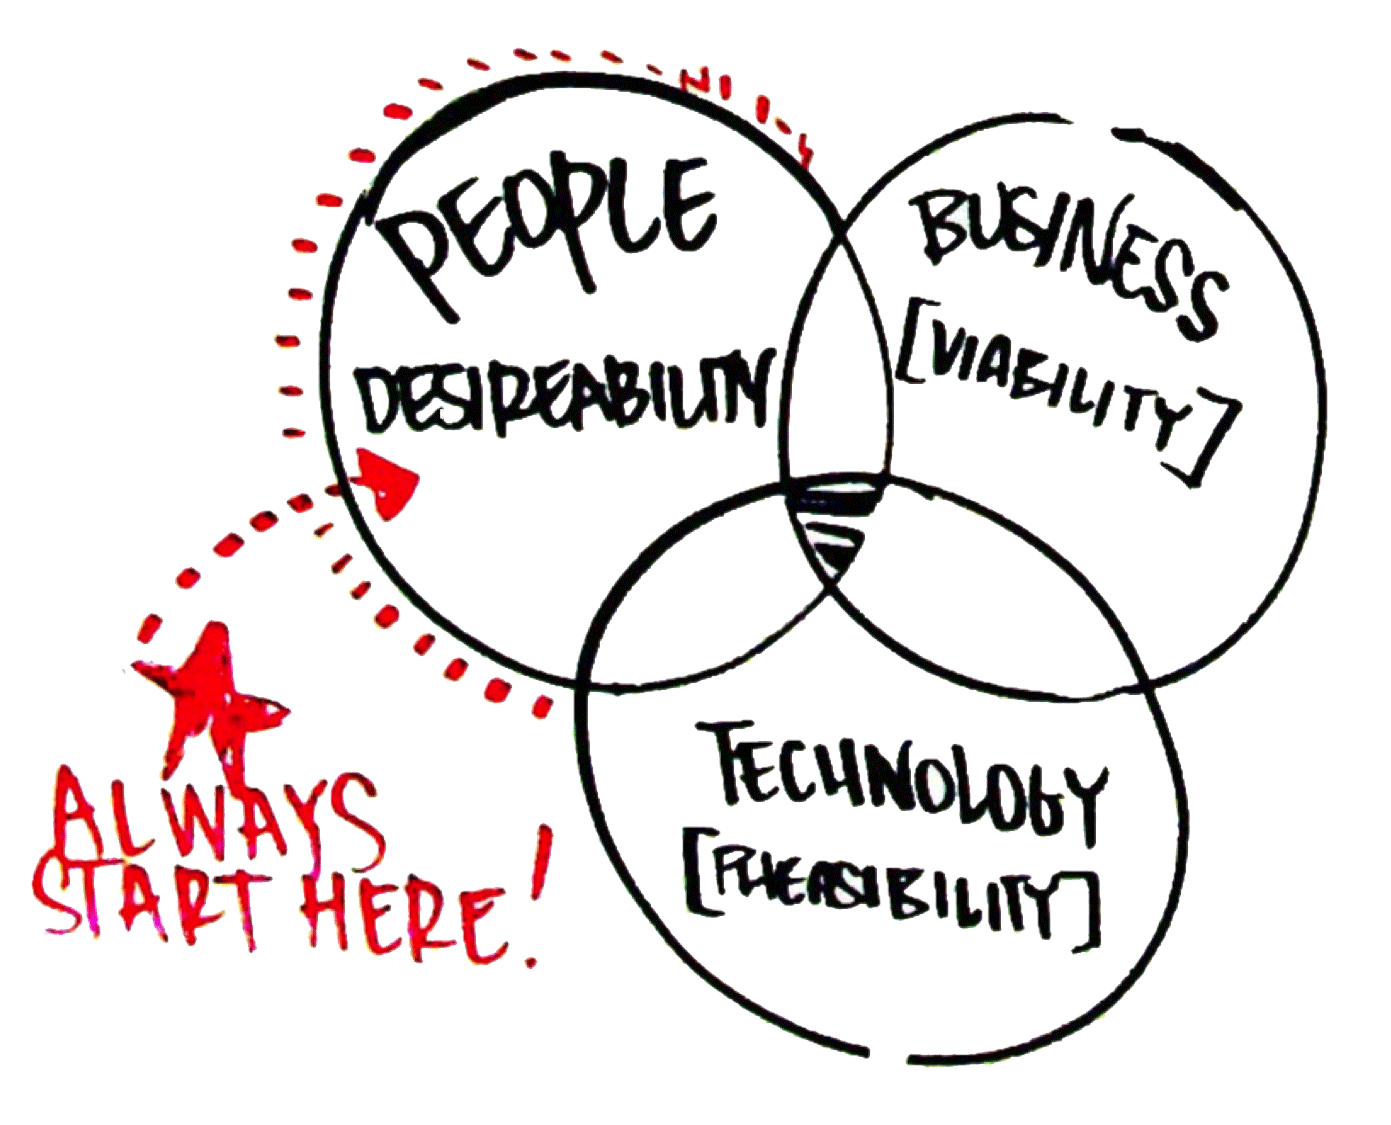 PEOPLE
DESIREABILITY
BUSINESS
[VIABILITY]
TECHNOLOGY
[PHEASIBILITY]
ALWAYS
START HERE!